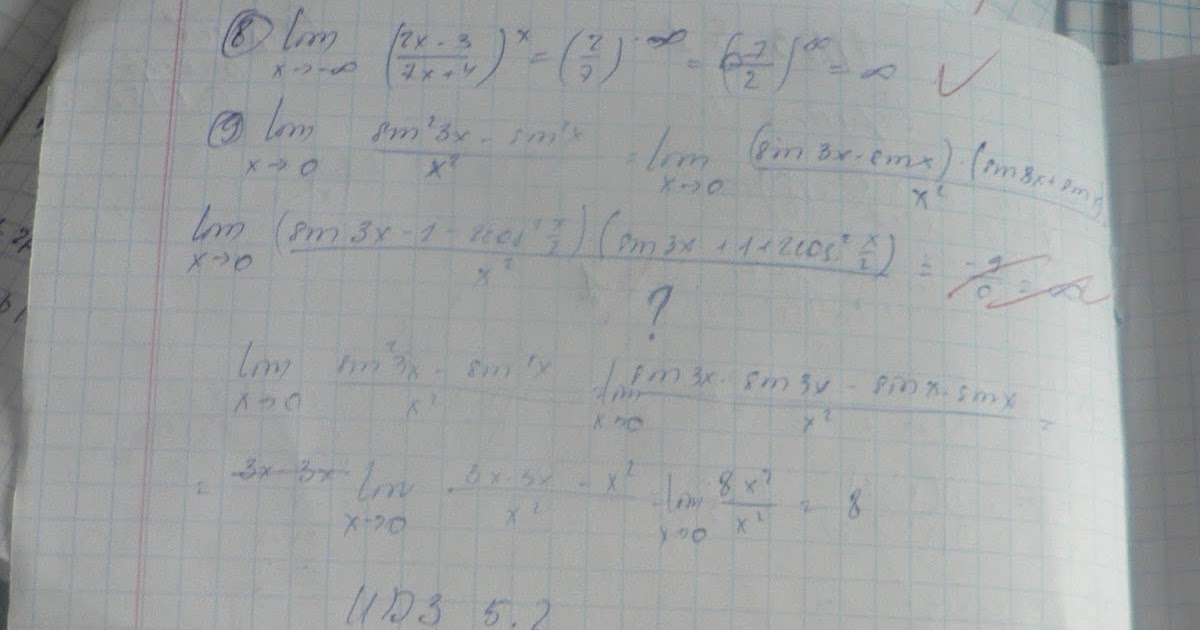 ⑧ lim x→-∞ ((2x - 3)/(7x + 4))^x = (2/7)^-∞ = (7/2)^∞ = ∞ ✓
⑨ lim x→0 (sin²3x - sin²x)/x² = lim x→0 ((sin 3x - sin x)·(sin 3x + sin x))/x²
lim x→0 ((sin 3x - 1 - 2cos² x/2)(sin 3x + 1 + 2cos² x/2))/x² = -9/0 = ∞
?
lim x→0 (sin²3x - sin²x)/x² = lim x→0 (sin 3x · sin 3x - sin x · sin x)/x² =
= 3x 3x lim x→0 (3x·3x - x²)/x² = lim x→0 8x²/x² = 8
ИДЗ 5.2